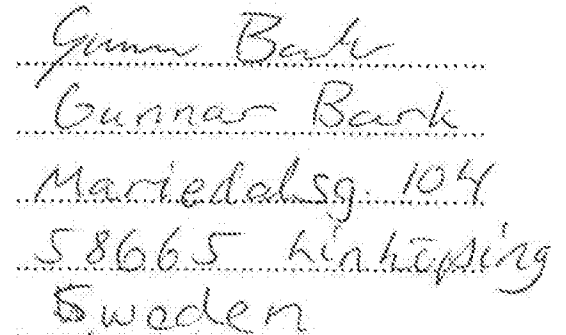 Gunnar Bark
Gunnar Bark
Mariedalsg. 104
58665 Linköping
Sweden